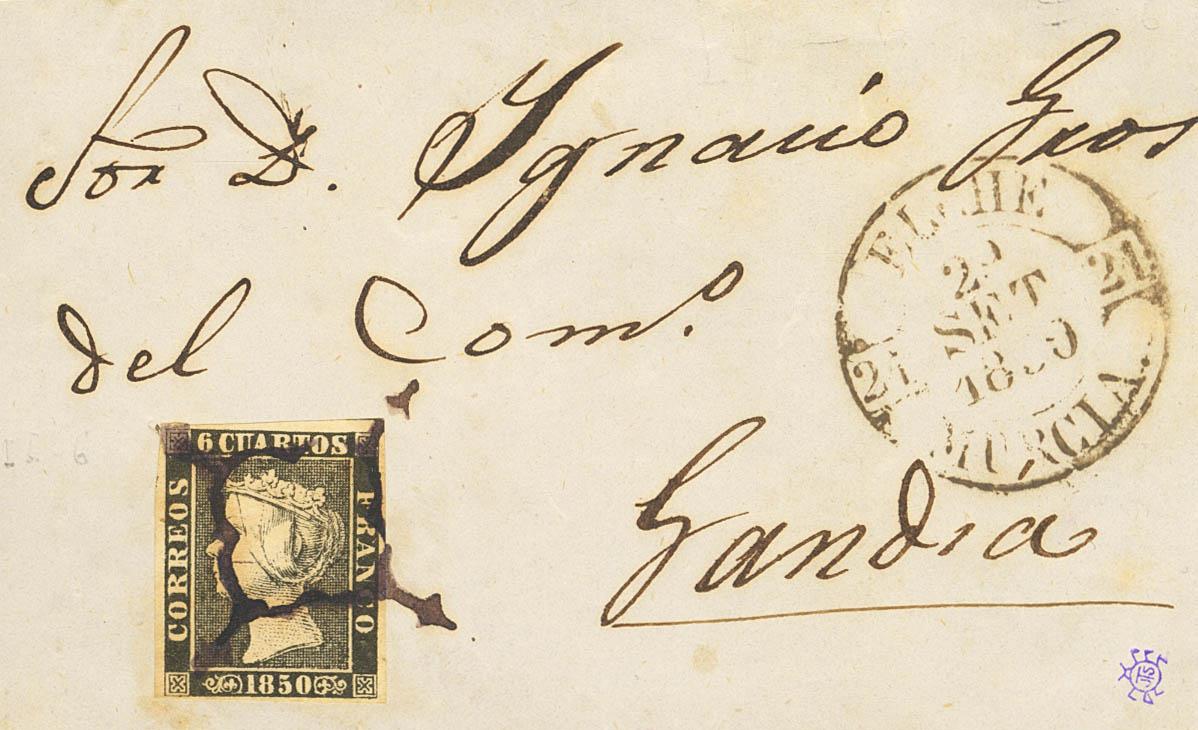 Sor Dn. Ignacio Gros
del Como.
Gandia
ELCHE
21
2
SET
1850
21
MURCIA.
6 CUARTOS
CORREOS
FRANCO
1850
JTS